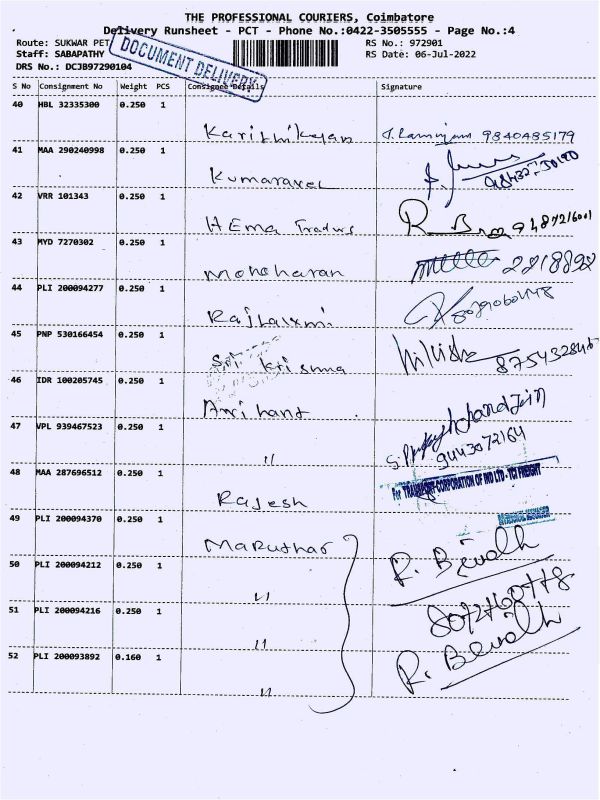 THE PROFESSIONAL COURIERS, Coimbatore
Delivery Runsheet - PCT - Phone No.:0422-3505555 - Page No.:4
Route: SUKWAR PET
RS No.: 972901
Staff: SABAPATHY
RS Date: 06-Jul-2022
DRS No.: DCJB97290104
DOCUMENT DELIVERY
S No Consignment No Weight PCS Consignee Details Signature
40 HBL 32335300 0.250 1
Karithikeyan 9840485179
41 MAA 290240998 0.250 1
Kumaravel
42 VRR 101343 0.250 1
HEma Traders
43 MYD 7270302 0.250 1
Manoharan 2218898
44 PLI 200094277 0.250 1
Rajlaxmi
45 PNP 530166454 0.250 1
Sri Krishna
46 IDR 100205745 0.250 1
Arihant
47 VPL 939467523 0.250 1
" 9443072164
48 MAA 287696512 0.250 1
For TRANSPORT CORPORATION OF IND LTD - TCI FREIGHT
Rajesh
49 PLI 200094370 0.250 1
Maruthar
50 PLI 200094212 0.250 1
"
51 PLI 200094216 0.250 1
"
52 PLI 200093892 0.160 1
"